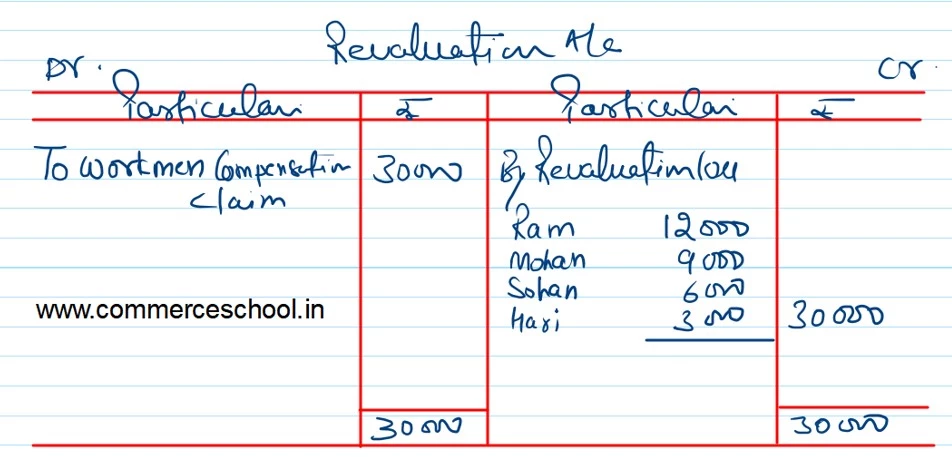 Revaluation A/c
Dr. Cr.
Particulars ₹ Particulars ₹
To Workmen Compensation 30000 By Revaluation loss
Claim
Ram 12000
Mohan 9000
Sohan 6000
www.commerceschool.in
Hari 3000 30000
30000 30000